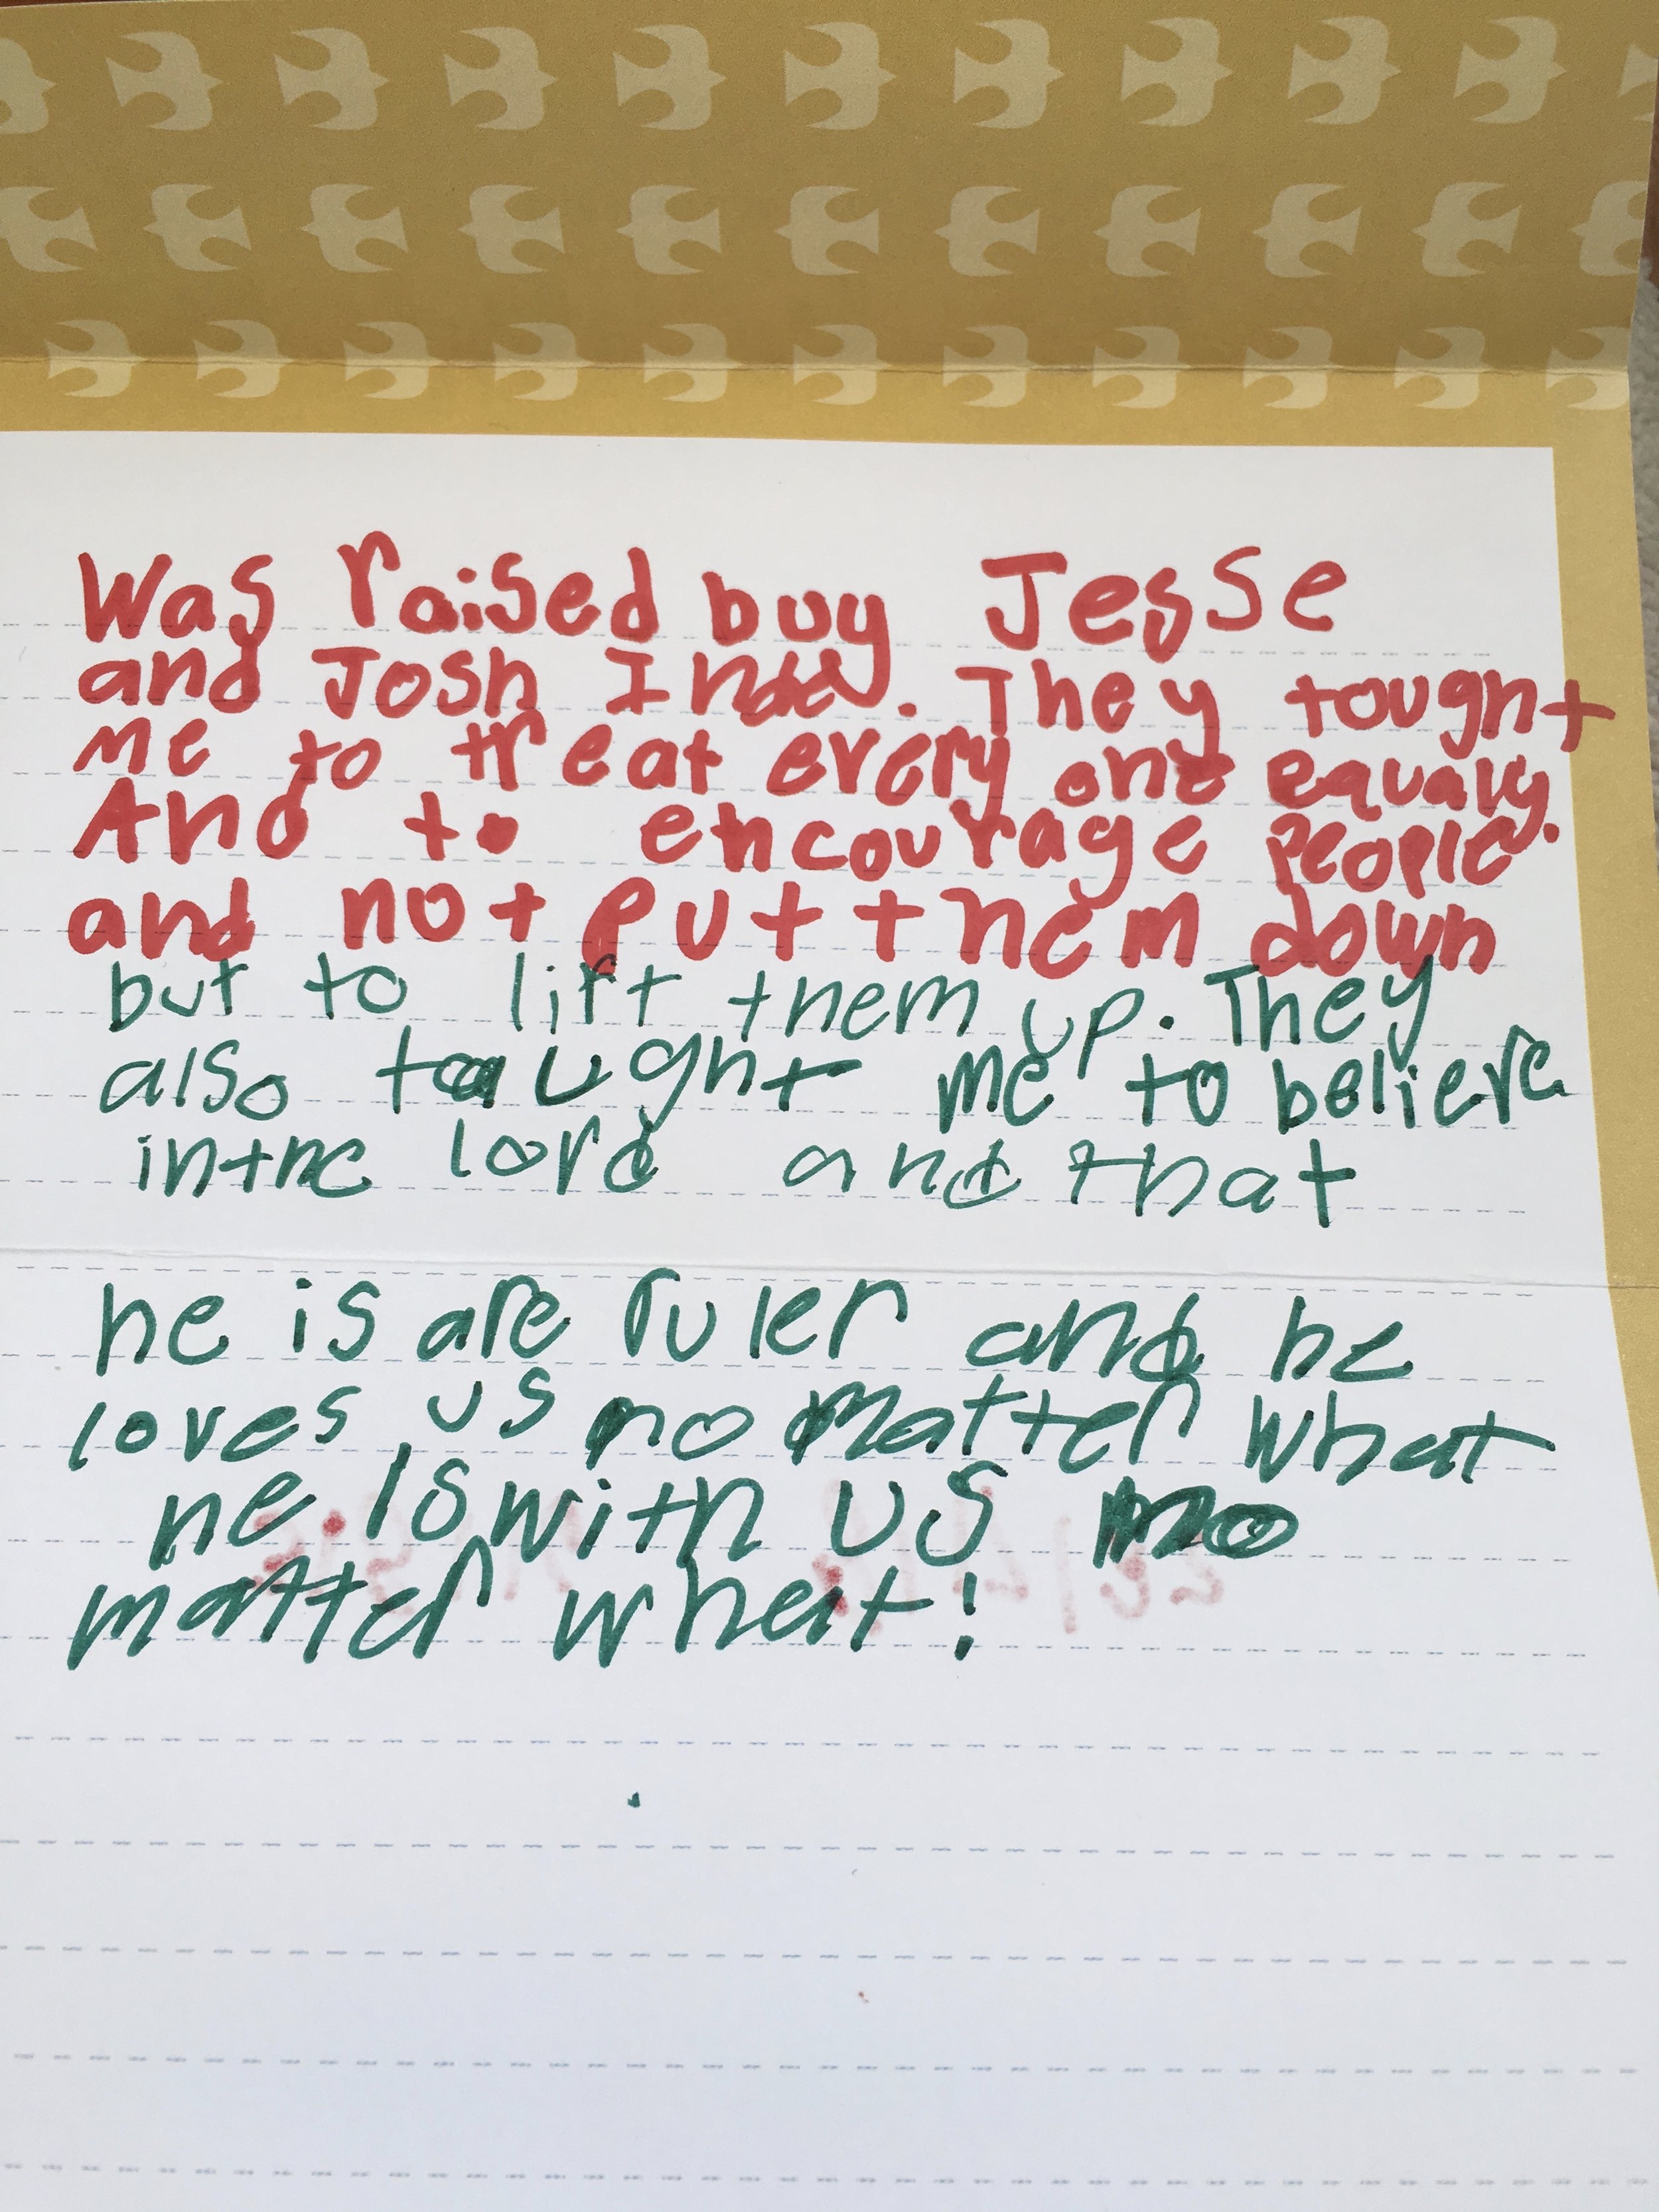 Was raised buy Jesse
and Josh
. They tought
me to treat every one equaly.
And to encourage people
and not put them down
but to lift them up. They
also taught me to believe
in the lord and that
he is are ruler and he
loves us no matter what
he is with us no
matter what!